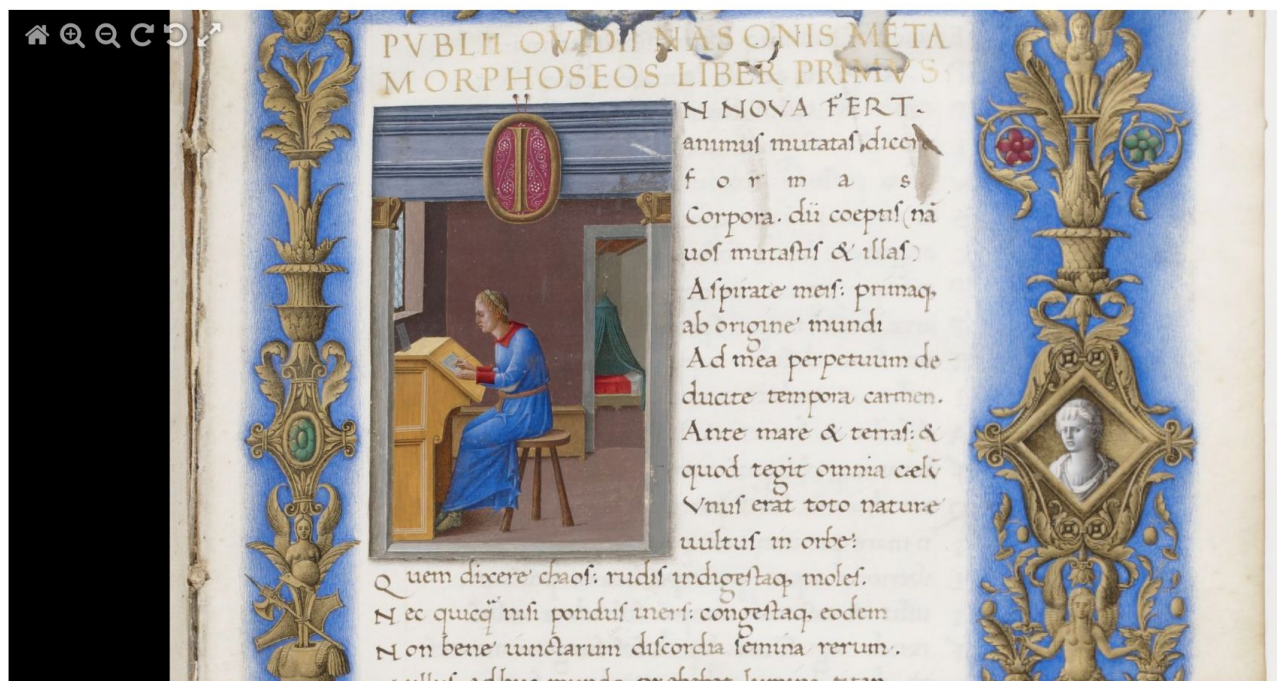 PVBLII OVIDII NASONIS META
MORPHOSEOS LIBER PRIMVS
IN NOVA FERT.
animuſ mutataſ dicere
f o r m a s
Corpora. dii coeptiſ (nā
uoſ mutaſtiſ & illaſ)
Aſpirate meiſ: primaq;
ab origine mundi
Ad mea perpetuum de
ducite tempora carmen.
Ante mare & terraſ: &
quod tegit omnia cælū
Vnuſ erat toto naturæ
uultuſ in orbe:
Quem dixere chaoſ: rudiſ indigeſtaq; moleſ.
Nec quicq̄ niſi ponduſ inerſ: congeſtaq; eodem
Non bene iunctarum diſcordia ſemina rerum.